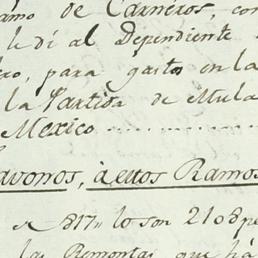 amo de Carneros, con
le dí al Dependiente
ro, para gasto en la
la Partida de Mula
Mexico
avonos, à estos Ramos
817 lo son 2108 pe
las Remontas que há